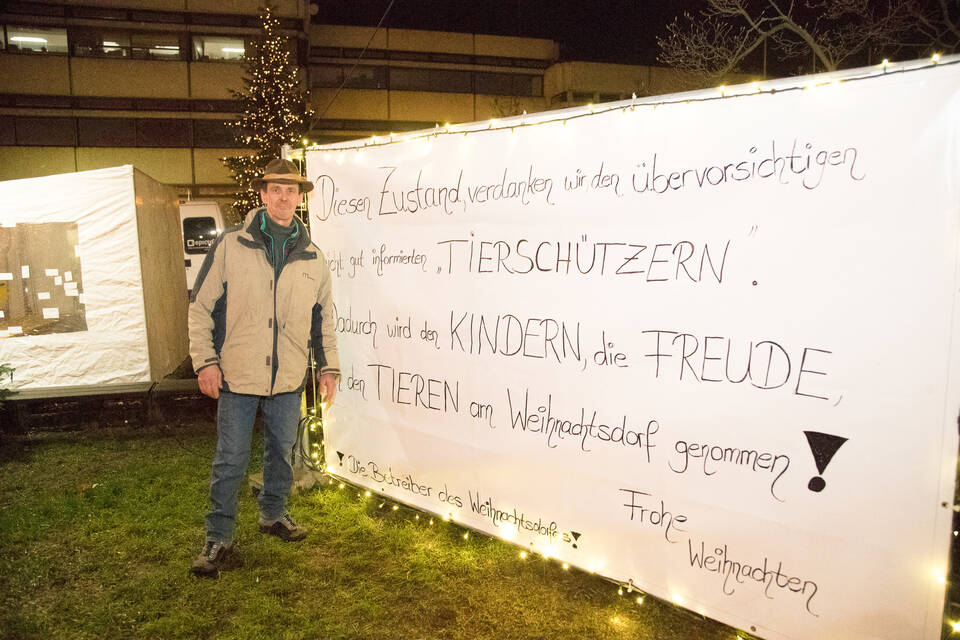 Diesen Zustand, verdanken wir den übervorsichtigen
gut informierten „TIERSCHÜTZERN".
Dadurch wird den KINDERN, die FREUDE,
den TIEREN am Weihnachtsdorf genommen!
! Die Betreiber des Weihnachtsdorfes!
Frohe
Weihnachten